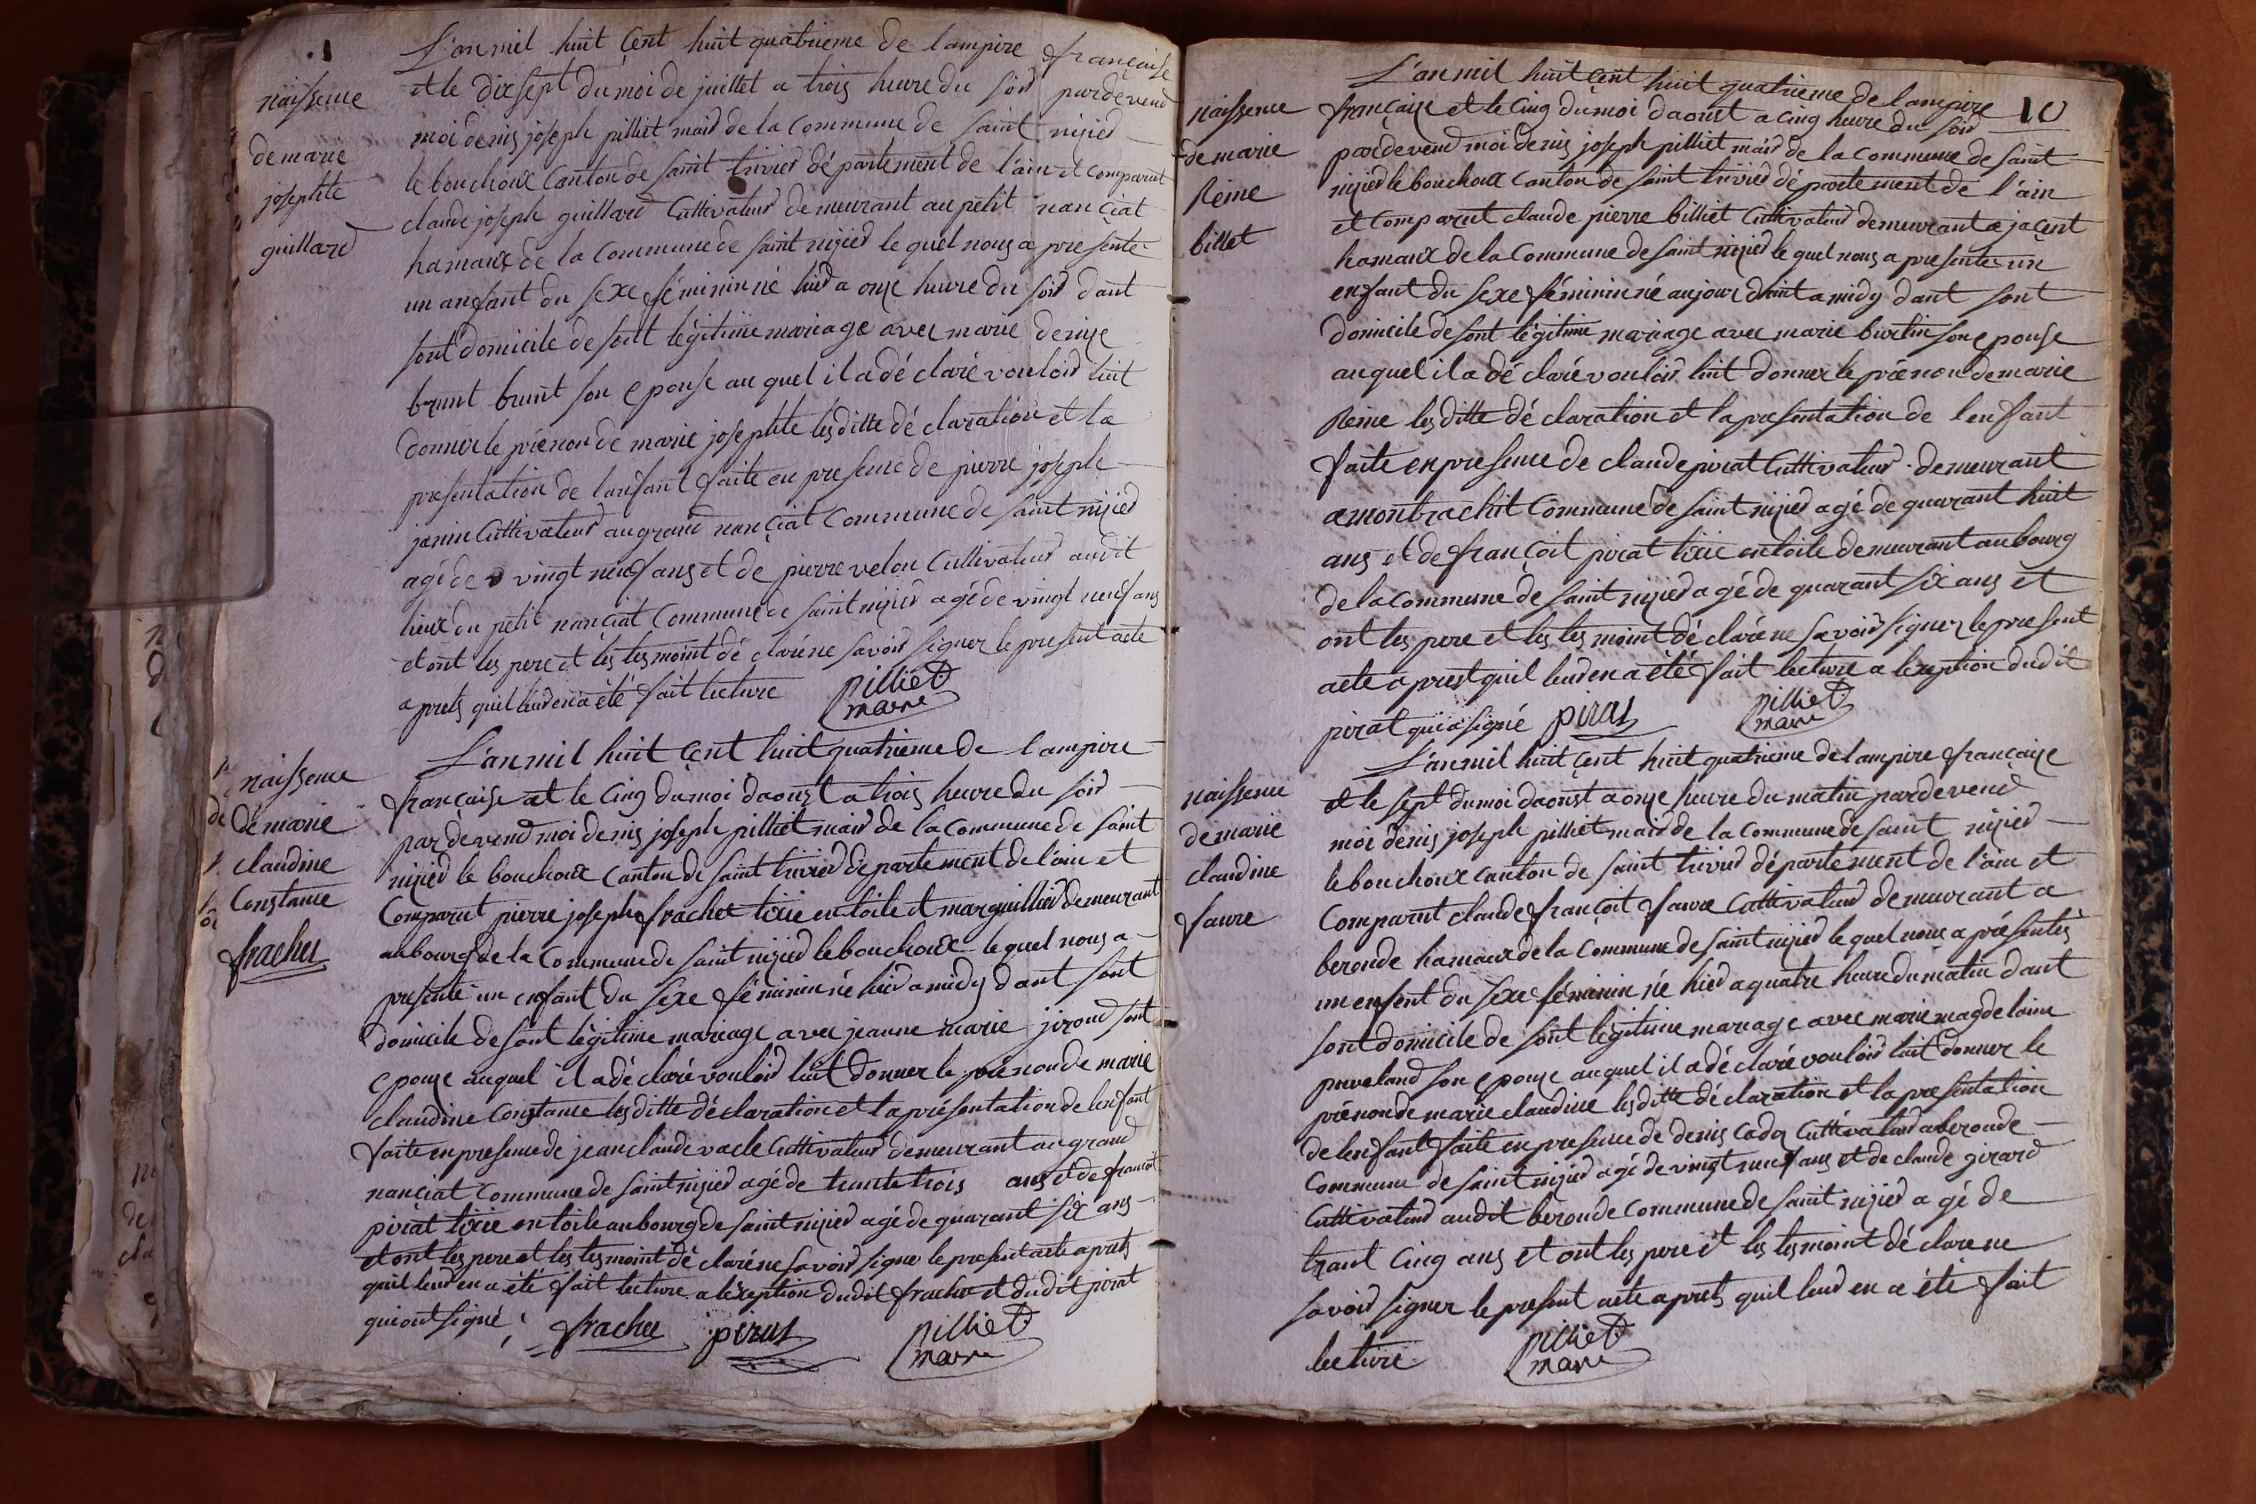 naissence
de marie
josephte
guillard
L'an mil huit cent huit quatrieme de lampire française
et le dix sept du moi de juillet a trois heure du soir pardevend
moi denis joseph pilliet mair de la commune de saint nizied
le bouchoux canton de saint trivier département de l'ain et comparut
claude joseph guillard Cultivateur demeurant au petit nanciat
hamaux de la commune de saint nizied le quel nous a presenté
un anfant du sexe féminin né hier a onze heure du soir dant
sont domicile de sont légitime mariage avec marie denise
brunt brunt son epouse au quel il a déclaré vouloir luit
donner le prénon de marie josephte les ditte déclaration et la
presentation de lanfant faite en presence de pierre joseph
janin Cultivateur au grand nanciat commune de saint nizied
agé de vingt neuf ans et de pierre velon cultivateur audit
lieux du petit nanciat commune de saint nizied agé de vingt neuf ans
et ont les pere et les tesmoint déclaré ne savoir signer le present acte
aprets quil leur en a été fait lecture pilliet
maire
naissence
de marie
claudine
Constance
frachet
L'an mil huit cent huit quatrieme de lampire
française et le cinq du moi daoust a trois heure du soir
pardevend moi denis joseph pilliet mair de la commune de saint
nizied le bouchoux canton de saint trivier departement de l'ain et
comparut pierre joseph frachet tixie en toile et marguillier demeurant
au bourg de la commune de saint nizied le bouchoux le quel nous a
presenté un enfant du sexe féminin né hier a midy dant sont
domicile de sont légitime mariage avec jeanne marie giroud sont
epouze auquel il a déclaré vouloir luit donner le prénon de marie
claudine constance les ditte déclaration et la présentation de lenfant
faite en presence de jean claude vacle Cultivateur demeurant au grand
nanciat commune de saint nizied agé de trente trois ans et de françoit
pirat tixie en toile au bourg de saint nizied agé de quarant six ans
et ont les pere et les tesmoint déclaré ne savoir signer le present acte aprets
quil leur en a été fait lecture a lexeption dudit frachet et dudit pirat
qui ont signé frachet pirat pilliet
maire
10
naissence
de marie
Reine
billet
L'an mil huit cent huit quatrieme de lampire
française et le cinq du moi daoust a cinq heure du soir
pardevend moi denis joseph pilliet mair de la commune de saint
nizied le bouchoux canton de saint trivier département de l'ain
et comparut claude pierre billiet Cultivateur demeurant a jacent
hamaux de la commune de saint nizied le quel nous a presenté un
enfant du sexe féminin né aujourdhuit a midy dant sont
domicile de sont légitime mariage avec marie burtin son epouse
auquel il a déclaré vouloir luit donner le prénon de marie
Reine les ditte déclaration et la presentation de lenfant
faite en presence de claude pirat Cultivateur demeurant
a montrachit commune de saint nizied agé de quarant huit
ans et de françoit pirat tixie en toile demeurant au bourg
de la commune de saint nizied agé de quarant six ans et
ont les pere et les tesmoint déclaré ne savoir signer le present
acte aprest quil leur en a été fait lecture a lexeption dudit
pirat qui a signé pirat pilliet
maire
naissence
de marie
claudine
favre
L'an mil huit cent huit quatrieme de lampire française
et le sept du moi daoust a onze heure du matin pardevend
moi denis joseph pilliet mair de la commune de saint nizied
le bouchoux canton de saint trivier département de l'ain et
comparut claude françoit favre Cultivateur demeurant a
beronde hamaux de la commune de saint nizied le quel nous a présentés
un enfent du sexe féminin né hier a quatre heure du matin dant
sont domicile de sont légitime mariage avec marie magdelaine
puveland son epouze auquel il a déclaré vouloir luit donner le
prénon de marie claudine les ditte déclaration et la presentation
de lenfant faite en presence de denis Cadoz Cultivateur a beronde
commune de saint nizied agé de vingt neuf ans et de claude girard
Cultivateur audit beronde commune de saint nizied agé de
trant cinq ans et ont les pere et les tesmoint déclare ne
savoir signer le present acte aprets quil leur en a été fait
lecture pilliet
maire